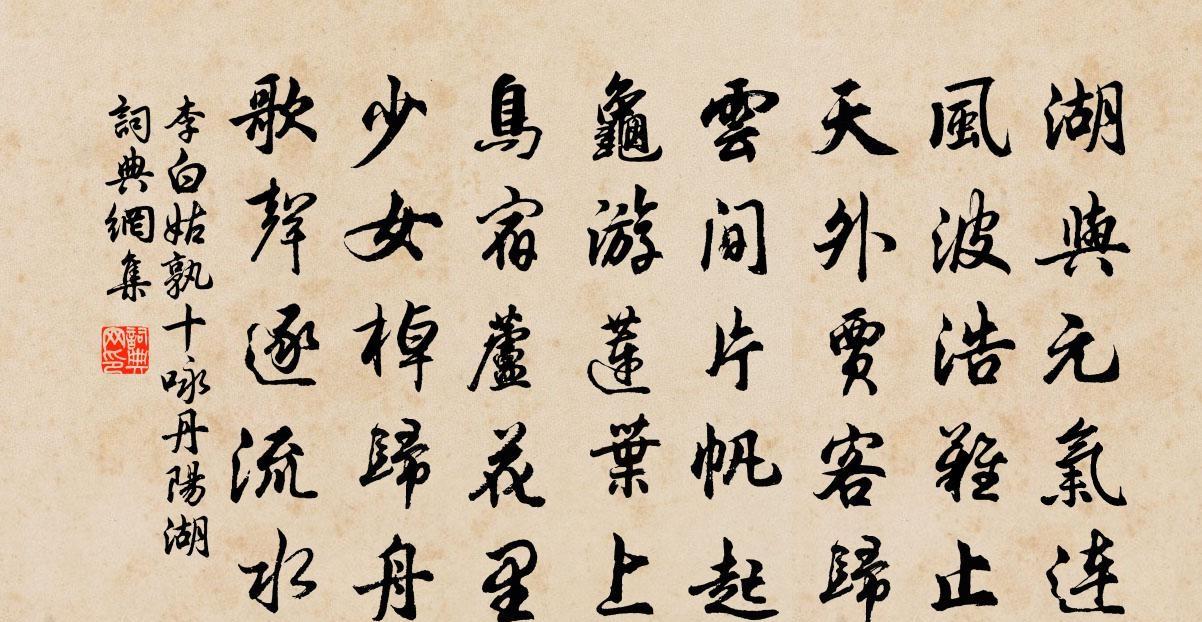 湖與元氣连
風波浩難止
天外賈客歸
雲间片帆起
龜游莲葉上
鳥宿蘆花里
少女棹歸舟
歌聲逐流水
李白姑孰十咏丹陽湖
詞典網集
詞典网印